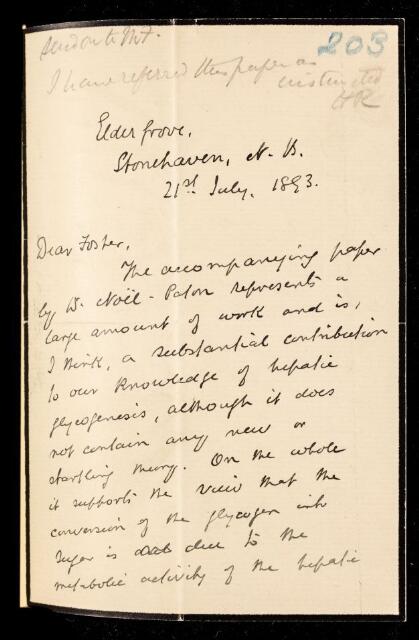 Send on to M.F.
203
I have referred this paper as
instructed
HR
Elder grove,
Stonehaven, N. B.
21st July. 1893.
Dear Foster,
The accompanying paper
by D. Noël-Paton represents a
large amount of work and is,
I think, a substantial contribution
to our knowledge of hepatic
glycogenesis, although it does
not contain any new or
startling theory. On the whole
it supports the view that the
conversion of the glycogen into
sugar is due to the
metabolic activity of the hepatic